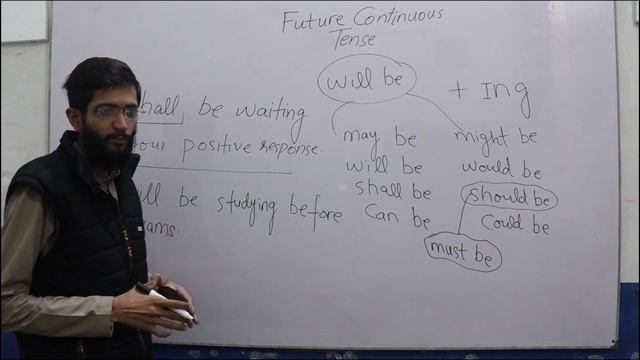 Future Continuous
Tense
will be
+ ing
hall be waiting
our positive response.
ill be studying before
ams.
may be
will be
shall be
Can be
might be
would be
should be
Could be
must be